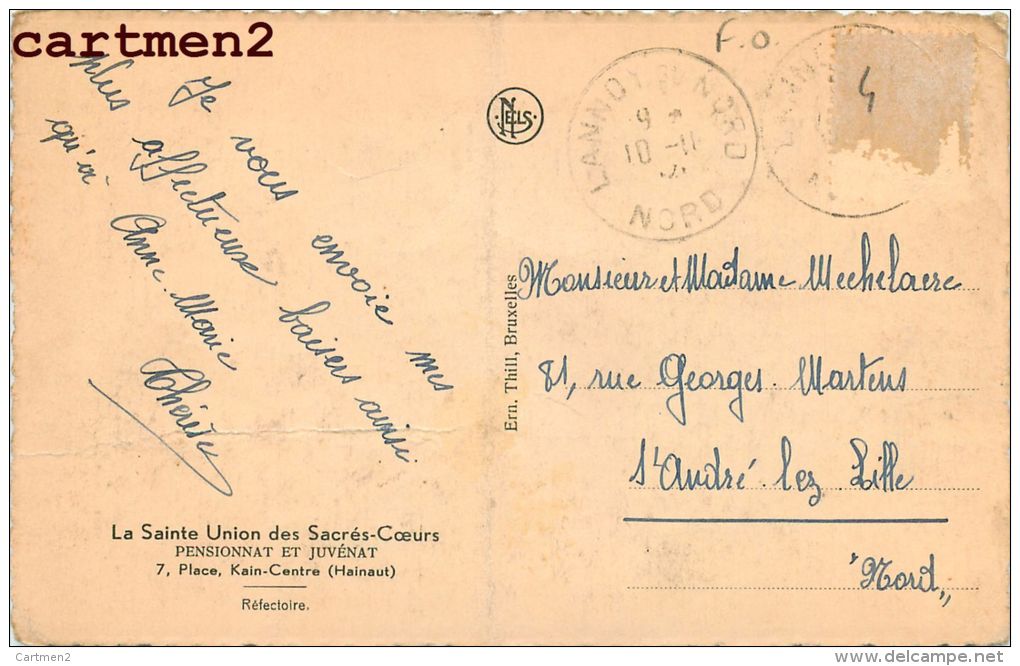 cartmen2
Je vous envoie mes
plus affectueux baisers ainsi
qu'à Anne-Marie
Thérèse
La Sainte Union des Sacrés-Cœurs
PENSIONNAT ET JUVÉNAT
7, Place, Kain-Centre (Hainaut)
Réfectoire.
NELS
Ern. Thill, Bruxelles
F.O.
4
LANNOY DU NORD
9
10-11
NORD
Monsieur et Madame Mechelaere
81, rue Georges Martens
St André lez Lille
"Nord"
Cartmen2
http://www.delcampe.net